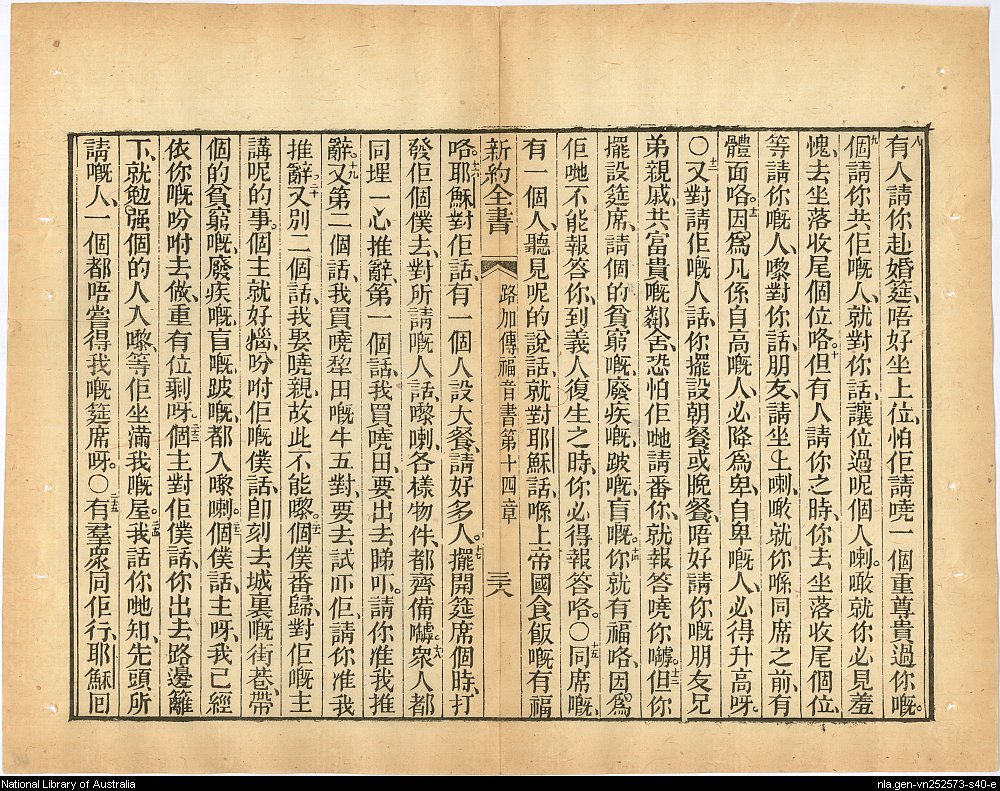 八有人請你赴婚筵、唔好坐上位、怕佢請嘵一個重尊貴過你嘅。
九個請你共佢嘅人、就對你話、讓位過呢個人喇。噉就你必見羞
愧、去坐落收尾個位咯。十但有人請你之時、你去坐落收尾個位、
等請你嘅人、嚟對你話、朋友、請坐上喇、噉就你喺同席之前、有
體面咯。十一因為凡係自高嘅人、必降為卑、自卑嘅人、必得升高呀。
〇十二又對請佢嘅人話、你擺設朝餐或晚餐、唔好請你嘅朋友兄
弟親戚、共富貴嘅鄰舍、恐怕佢哋請番你、就報答嘵你嚹。十三但你
擺設筵席、請個的貧窮嘅、廢疾嘅、跛嘅、盲嘅。十四你就有福咯、因為
佢哋不能報答你、到義人復生之時、你必得報答咯。〇十五同席嘅、
有一個人、聽見呢的說話、就對耶穌話、喺上帝國食飯嘅有福
新約全書
路加傳福音書第十四章
三八
咯。十六耶穌對佢話、有一個人設大餐、請好多人。十七擺開筵席個時、打
發佢個僕、去對所請嘅人話、嚟喇、各樣物件、都齊備嚹。十八衆人都
同埋一心推辭、第一個話、我買嘵田、要出去睇吓。請你准我推
辭。十九又第二個話、我買嘵犂田嘅牛五對、要去試吓佢、請你准我
推辭。二十又別二個話、我娶嘵親、故此不能嚟。二十一個僕番歸、對佢嘅主
講呢的事。個主就好惱、吩咐佢嘅僕話、卽刻去城裏嘅街巷、帶
個的貧窮嘅、廢疾嘅、盲嘅、跛嘅、都入嚟喇。二十二個僕話、主呀、我已經
依你嘅吩咐去做、重有位剩呀。二十三個主對佢僕話、你出去路邊籬
下、就勉强個的人入嚟、等佢坐滿我嘅屋。二十四我話你哋知、先頭所
請嘅人、一個都唔嘗得我嘅筵席呀。〇二十五有羣衆同佢行、耶穌囘
National Library of Australia
nla.gen-vn252573-s40-e